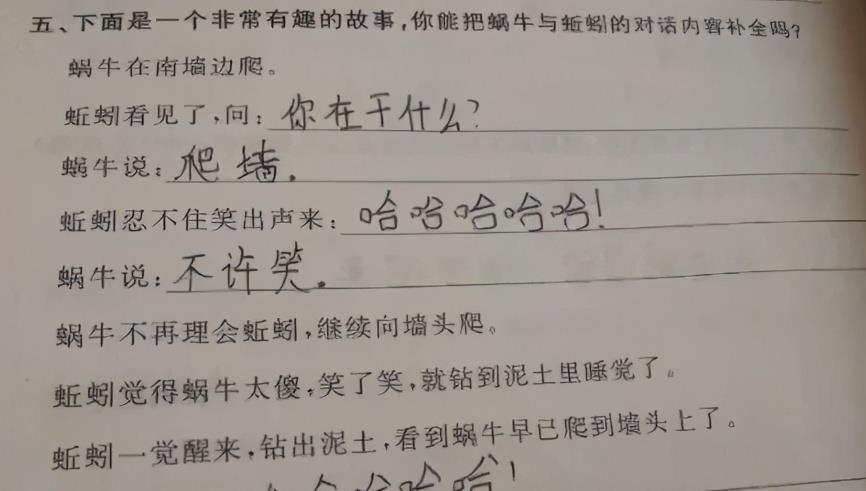 五、下面是一个非常有趣的故事,你能把蜗牛与蚯蚓的对话内容补全吗?
蜗牛在南墙边爬。
蚯蚓看见了,问:你在干什么?
蜗牛说:爬墙.
蚯蚓忍不住笑出声来:哈哈哈哈哈!
蜗牛说:不许笑.
蜗牛不再理会蚯蚓,继续向墙头爬。
蚯蚓觉得蜗牛太傻,笑了笑,就钻到泥土里睡觉了。
蚯蚓一觉醒来,钻出泥土,看到蜗牛早已爬到墙头上了。
哈哈哈!